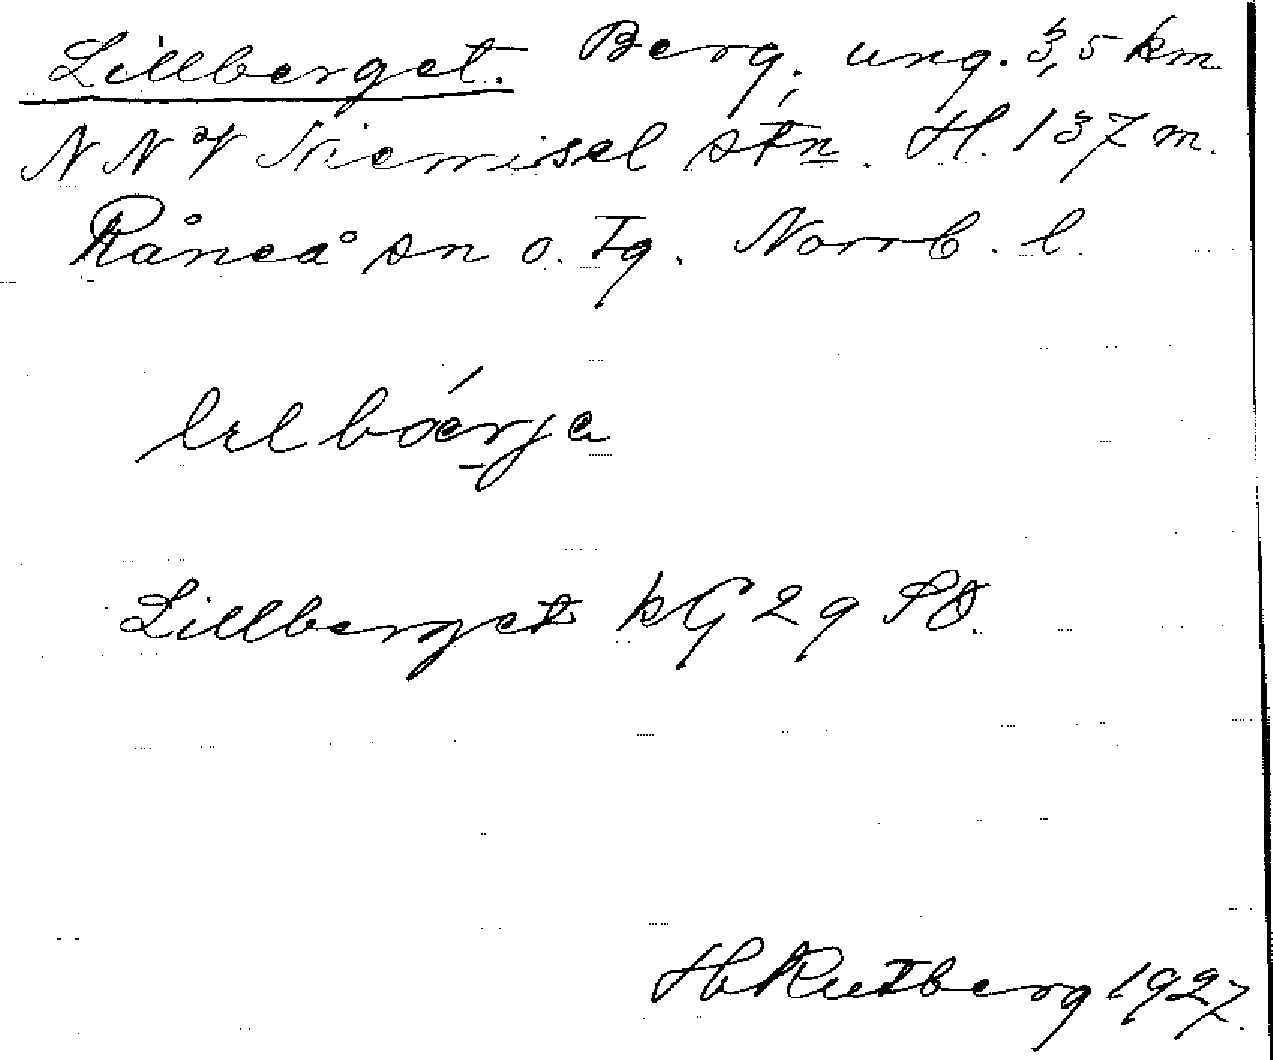 Lillberget. Berg, ung. 3,5 km
NNV Niemisel stn. H. 137 m.
Råneå sn o. tg. Norrb. l.
lılbáerja
Lillberget kG29 SO.
H Rutberg 1927.